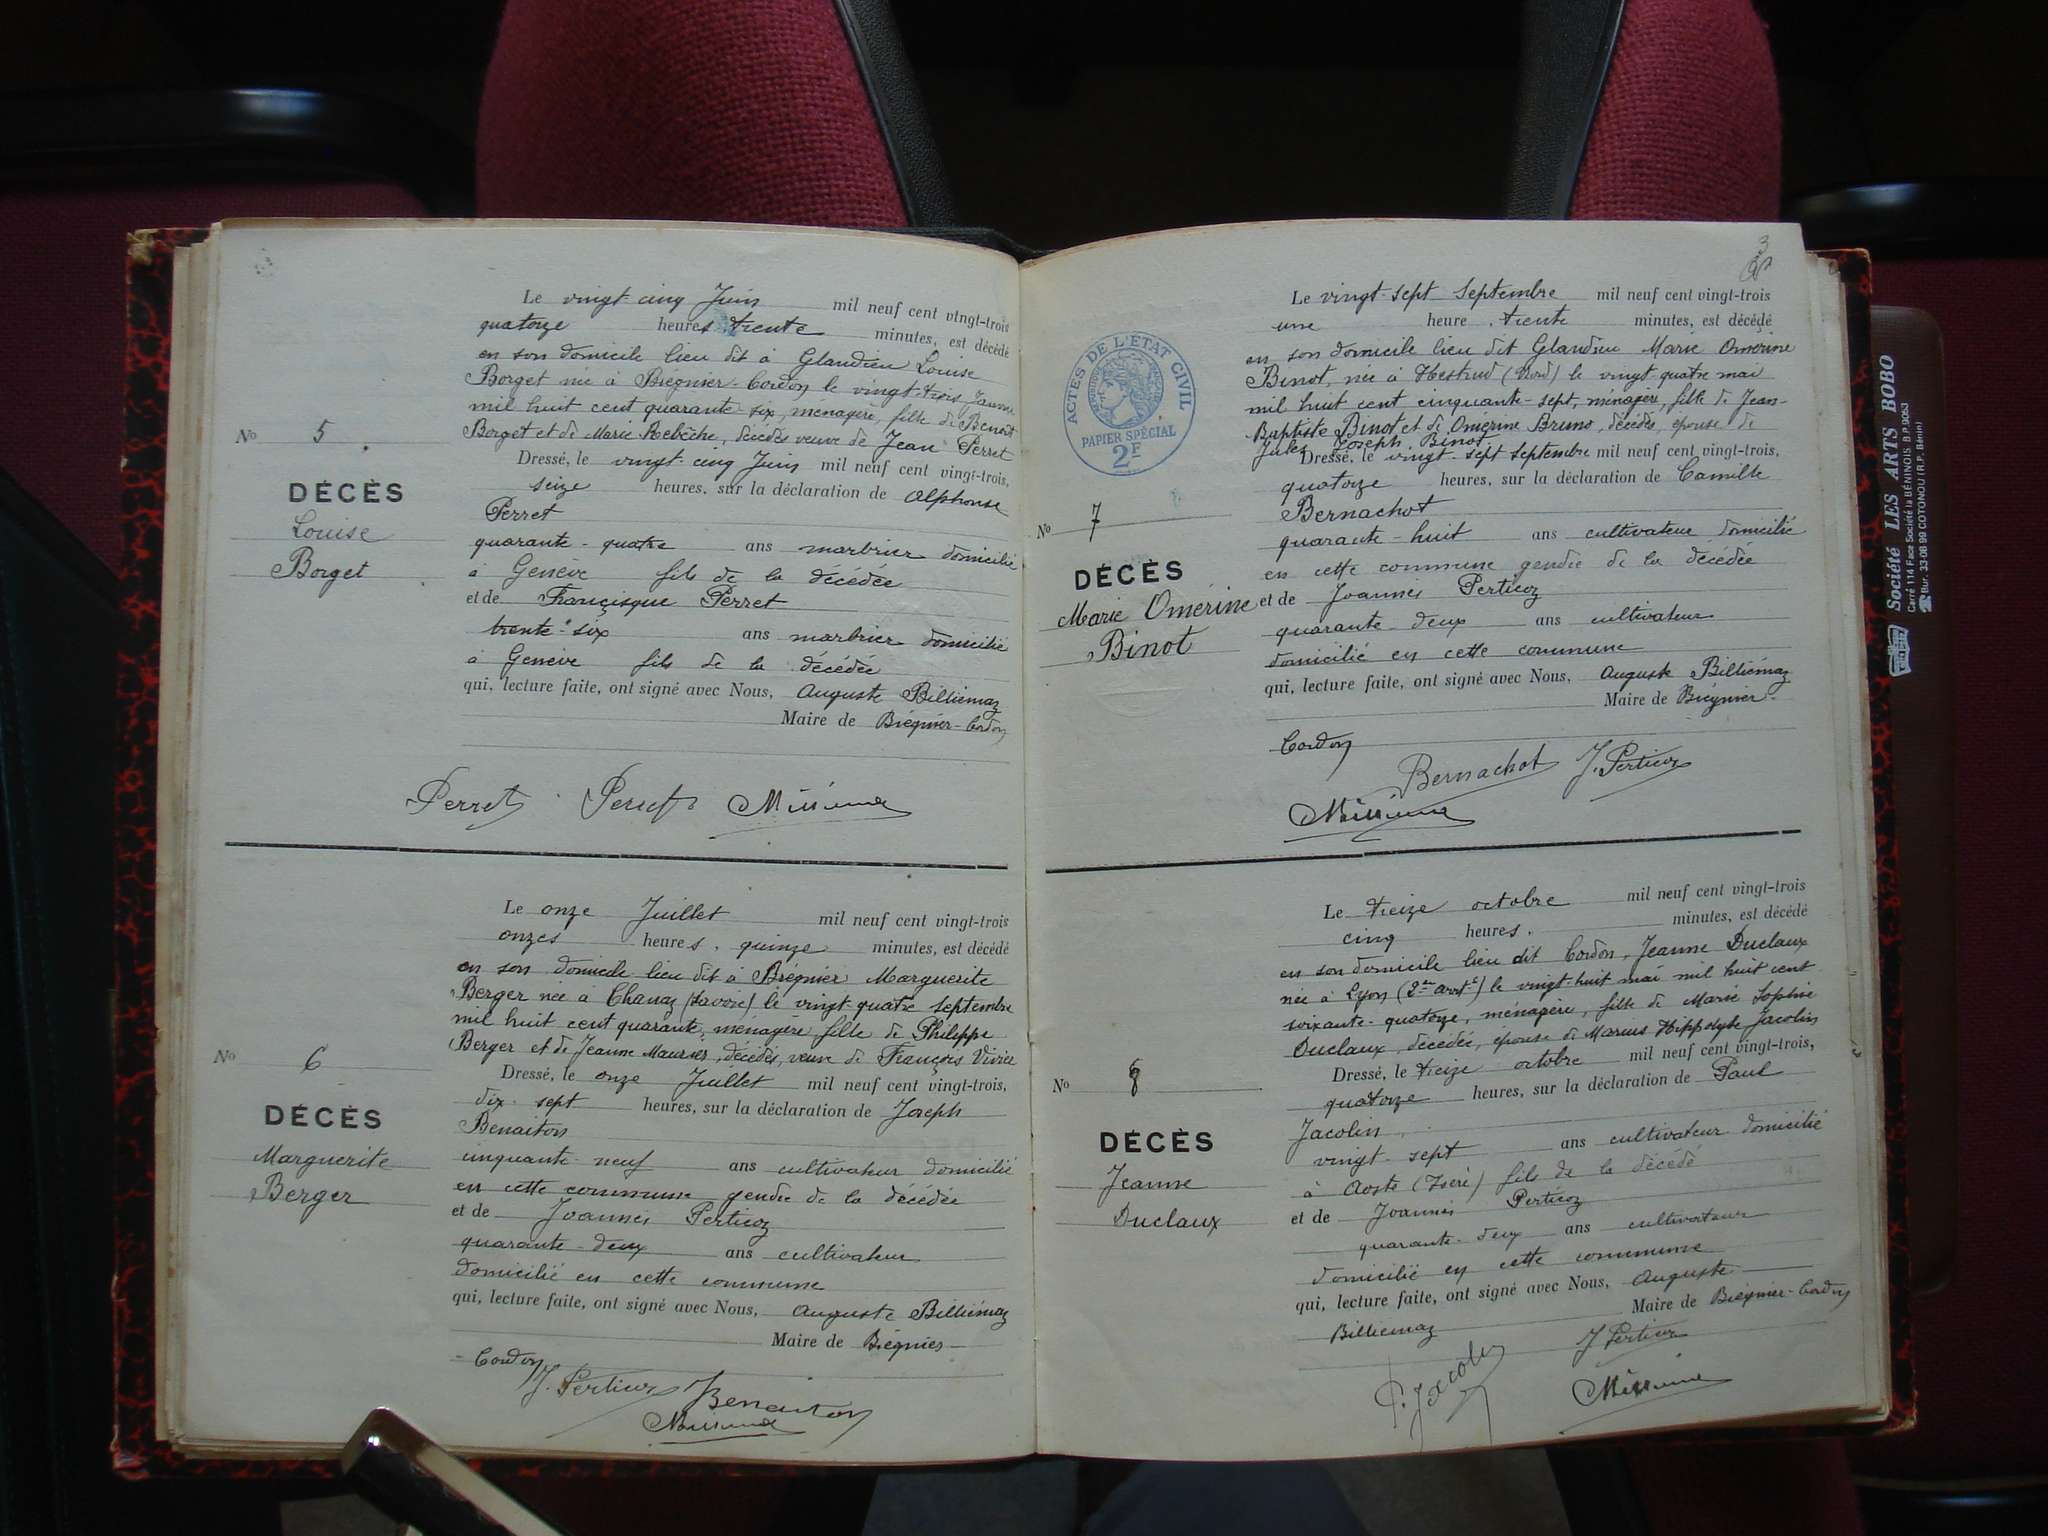 Le vingt-cinq Juin mil neuf cent vingt-trois
quatorze heures trente minutes, est décédé
en son domicile lieu dit à Glandieu Louise
Borget née à Brégnier-Cordon le vingt-trois Janvier
mil huit cent quarante-six, ménagère, fille de Benoît
Borget et de Marie Rebêche, décédés veuve de Jean Perret
Dressé, le vingt-cinq Juin mil neuf cent vingt-trois,
seize heures, sur la déclaration de Alphonse
Perret
quarante-quatre ans marbrier domicilié
à Genève fils de la décédée
et de Françisque Perret
trente-six ans marbrier domicilié
à Genève fils de la décédée
qui, lecture faite, ont signé avec Nous, Auguste Billiémaz
Maire de Brégnier-Cordon
No 5
DÉCÈS
Louise
Borget
Perret Perret
Le onze Juillet mil neuf cent vingt-trois
onzes heures, quinze minutes, est décédé
en son domicile lieu dit à Brégnier Marguerite
Berger née à Chanaz (Savoie) le vingt quatre septembre
mil huit cent quarante, ménagère, fille de Philippe
Berger et de Jeanne Maurier, décédés, veuve de François Vivier
Dressé, le onze Juillet mil neuf cent vingt-trois,
dix-sept heures, sur la déclaration de Joseph
Benaiton
cinquante-neuf ans cultivateur domicilié
en cette commune gendre de la décédée
et de Joannès Perticoz
quarante-deux ans cultivateur
domicilié en cette commune
qui, lecture faite, ont signé avec Nous, Auguste Billiémaz
Maire de Brégnier-
-Cordon
No 6
DÉCÈS
Marguerite
Berger
J. Perticoz Benaiton
3
Le vingt-sept Septembre mil neuf cent vingt-trois
une heure, trente minutes, est décédé
en son domicile lieu dit Glandieu Marie Omérine
Binot, née à Hestrud (Nord) le vingt quatre mai
mil huit cent cinquante-sept, ménagère, fille de Jean-
Baptiste Binot et de Omérine Bruno, décédés, épouse de
Jules Joseph Binot
Dressé, le vingt-sept septembre mil neuf cent vingt-trois,
quatorze heures, sur la déclaration de Camille
Bernachot
quarante-huit ans cultivateur domicilié
en cette commune gendre de la décédée
et de Joannès Perticoz
quarante deux ans cultivateur
domicilié en cette commune
qui, lecture faite, ont signé avec Nous, Auguste Billiémaz
Maire de Brégnier-
Cordon
ACTES DE L'ÉTAT CIVIL
PAPIER SPÉCIAL
2F
No 7
DÉCÈS
Marie Omérine
Binot
Bernachot J. Perticoz
Le treize octobre mil neuf cent vingt-trois
cinq heures, minutes, est décédé
en son domicile lieu dit Cordon, Jeanne Duclaux
née à Lyon (2me arrt) le vingt-huit mai mil huit cent
soixante-quatorze, ménagère, fille de Marie Sophie
Duclaux, décédée, épouse de Marcus Hippolyte Jacolin
Dressé, le treize octobre mil neuf cent vingt-trois,
quatorze heures, sur la déclaration de Paul
Jacolin
vingt-sept ans cultivateur domicilié
à Aoste (Isère) fils de la décédé
et de Joannès Perticoz
quarante-deux ans cultivateur
domicilié en cette commune
qui, lecture faite, ont signé avec Nous, Auguste
Billiemaz Maire de Brégnier-Cordon
No 8
DÉCÈS
Jeanne
Duclaux
P. Jacolin J Perticoz
Société LES ARTS BOBO
Carré 114 Face Société la BÉNINOIS B.P. 9063
Bur. 33-06 99 COTONOU (R.P. Bénin)